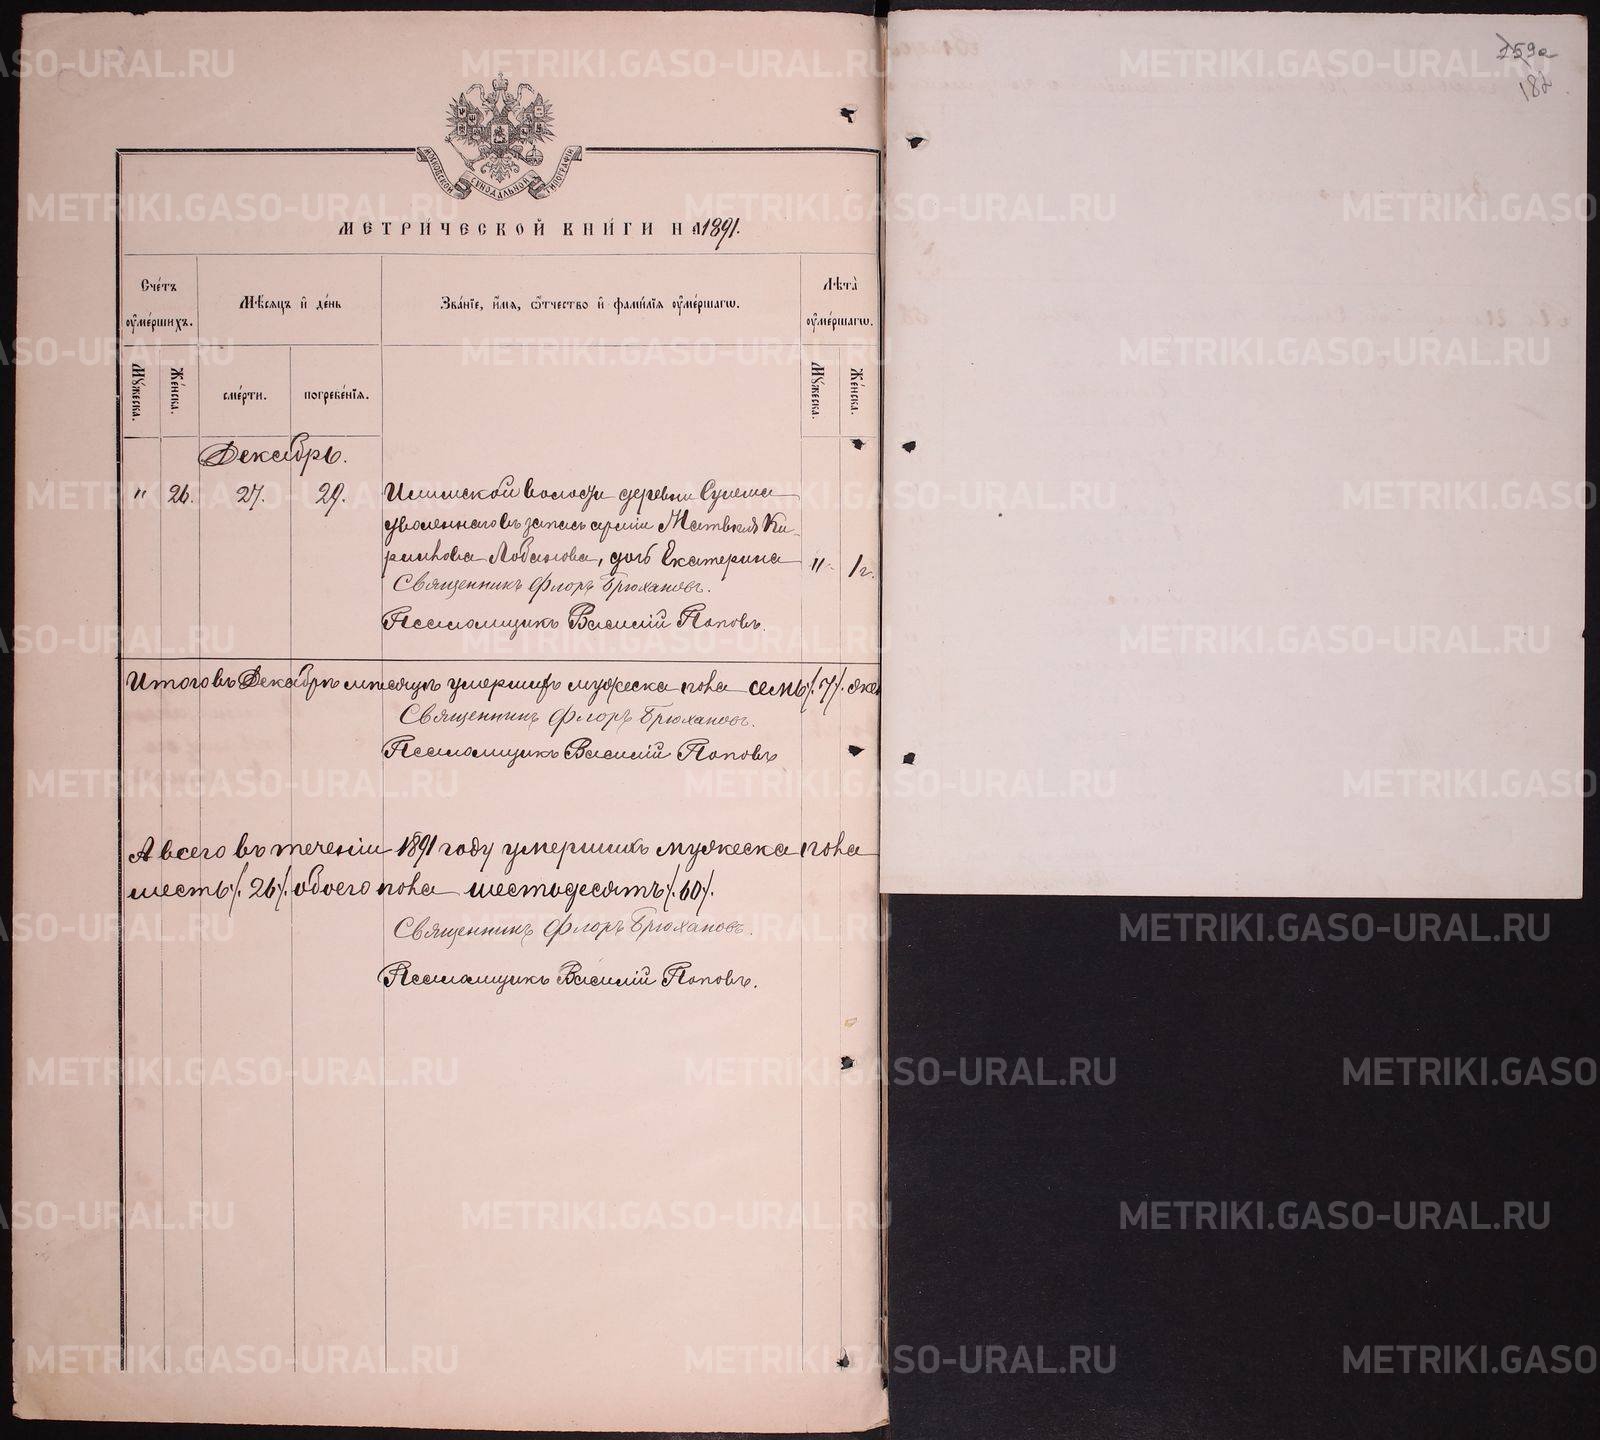 159а
182
МОСКОВСКОЙ СѴНОДАЛЬНОЙ ТИПОГРАФІИ
МЕТРИ́ЧЕСКОЙ КНИ́ГИ НА 1891.
Сче́тъ ᲂу҆ме́ршихъ.
Мѣ́сяцъ и҆ де́нь
Зва́нїе, и҆́мѧ, ѻ҆́тчество и҆ фами́лїѧ ᲂу҆ме́ршагѡ.
Лѣ́та ᲂу҆ме́ршагѡ.
Мꙋ́жеска.
Же́нска.
сме́рти.
погребе́нїѧ.
Мꙋ́жеска.
Же́нска.
Декабрь.
" 26. 27. 29. Илимской волости деревни
уволеннаго въ запасъ арміи Матвея Ки-
рилова Лобанова, дочь Екатерина " 1 г.
Священникъ Флоръ Брюхановъ.
Псаломщикъ Василій Поповъ.
Итого въ Декабрѣ мѣсяцѣ умершихъ мужеска пола семь /.7/. жен
Священникъ Флоръ Брюхановъ.
Псаломщикъ Василій Поповъ
А всего въ теченіи 1891 году умершихъ мужеска пола
шесть /.26/. обоего пола шестьдесятъ /.60/.
Священникъ Флоръ Брюхановъ.
Псаломщикъ Василій Поповъ.
METRIKI.GASO-URAL.RU